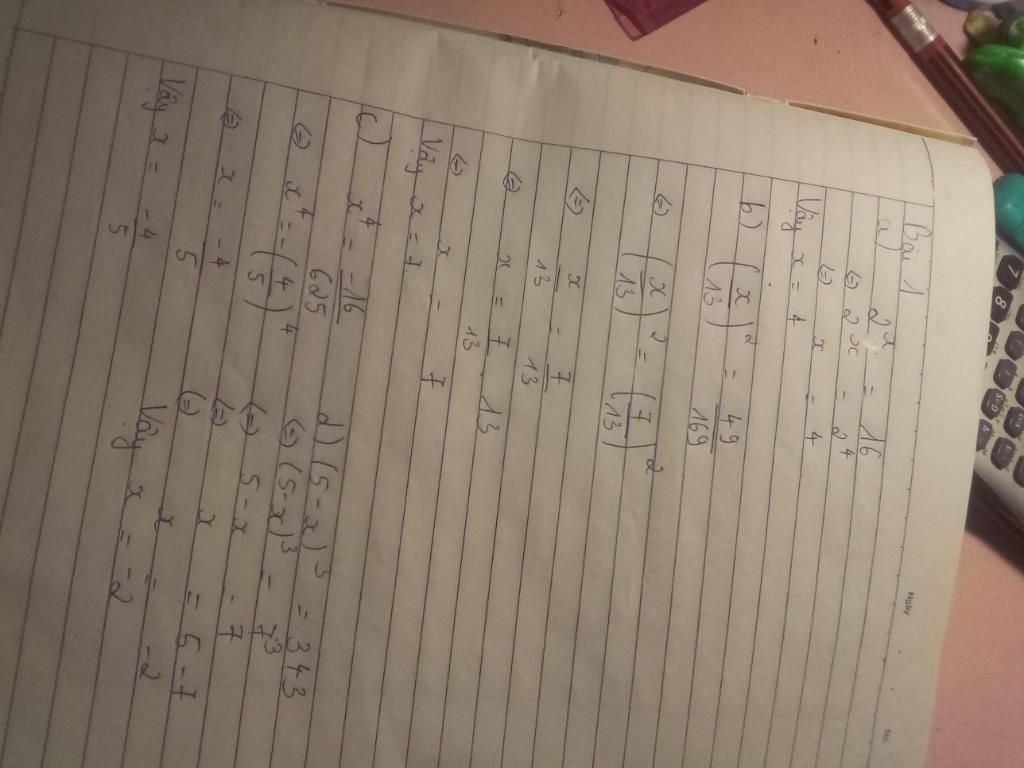 Ngày
No.
Bài 1
a) 2^x = 16
⇔ 2^x = 2^4
⇔ x = 4
Vậy x = 4
b) (x/13)^2 = 49/169
⇔ (x/13)^2 = (7/13)^2
⇔ x/13 = 7/13
⇔ x = 7/13 . 13
⇔ x = 7
Vậy x = 7
c) x^4 = -16/625
⇔ x^4 = -(4/5)^4
⇔ x = -4/5
Vậy x = -4/5
d) (5-x)^3 = 343
⇔ (5-x)^3 = 7^3
⇔ 5-x = 7
⇔ x = 5-7
x = -2
Vậy x = -2
7
8